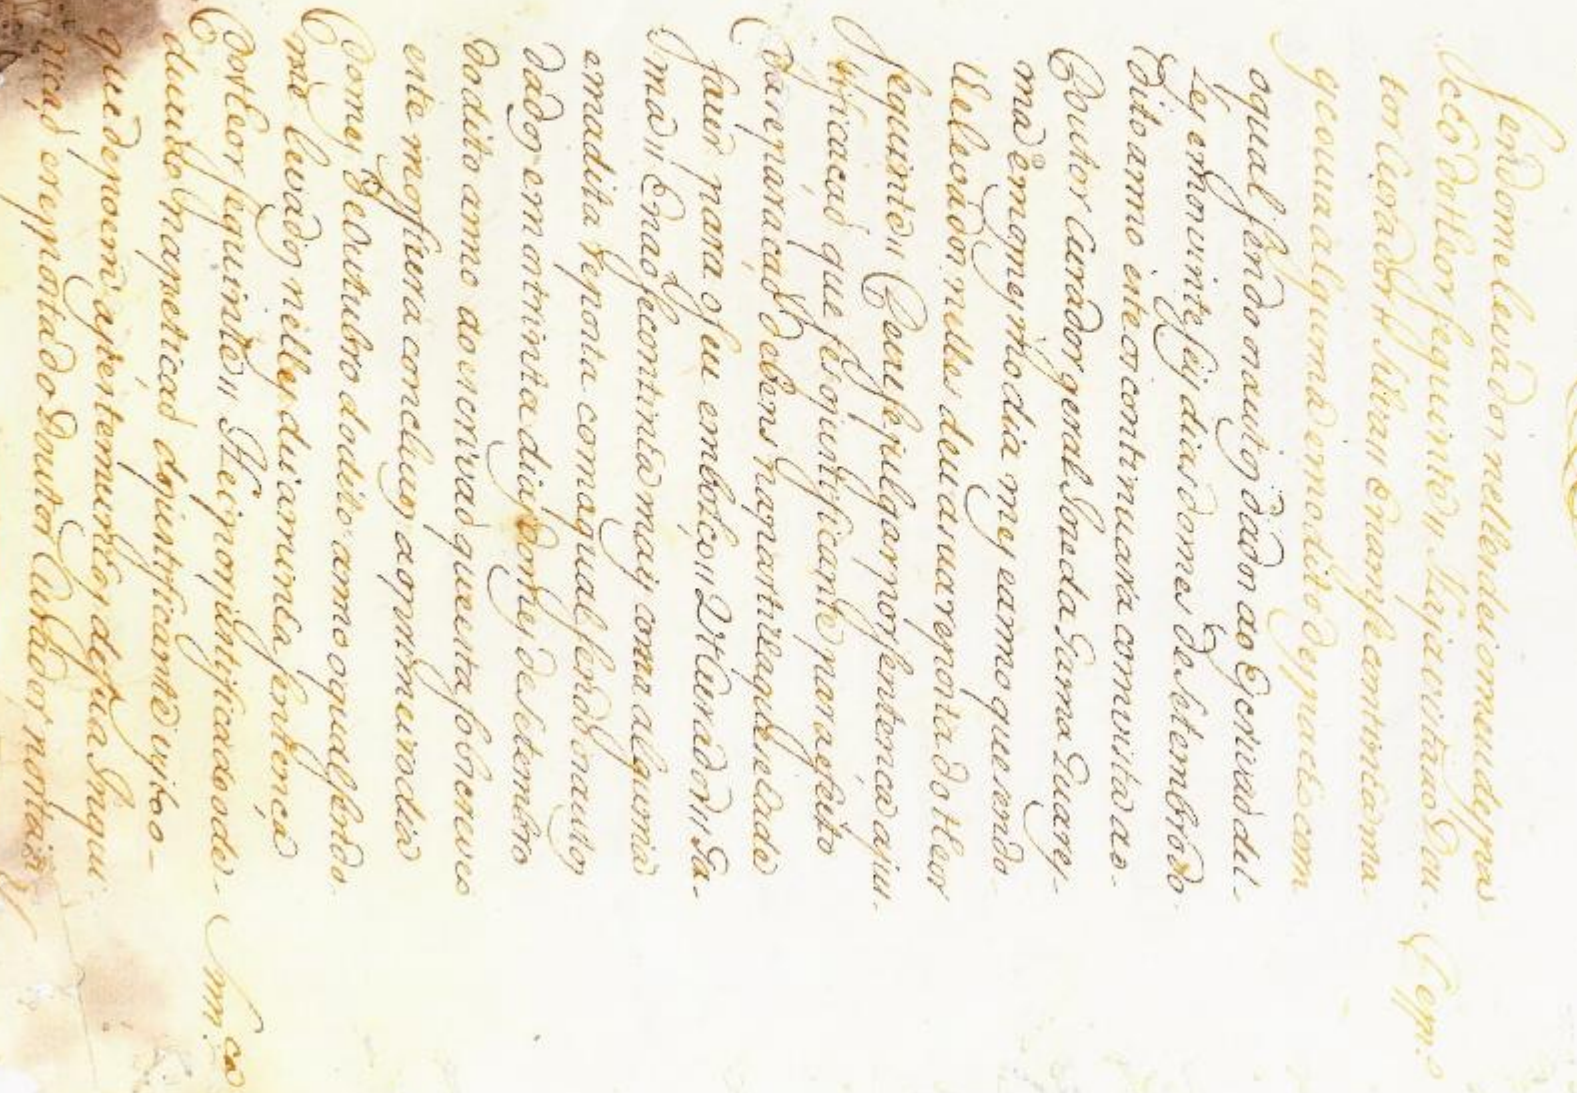 sendome levado nelles dei o meu despa-
cho do theor seguinte // Haja vista o Dou-
tor Curador // Silva // E nam se continha ma-
is couza alguma em o dito despacho com
o qual sendo os autos dados ao Escrivaõ del-
les em os vinte seis dias do mes de Setembro do
dito anno este os continuara com vista ao
Doutor Curador geral Jose da Gama Quares-
ma Em o mesmo dia mes e anno que sendo
lhe levados nelles deu a sua reposta do theor
seguinte // Deve se julgar por sentenca a jus-
tificacaõ que fes o justificante para efeito
da reparacaõ de bens na partilha que elle de
fazer para o seu emboço // O Curador // Ga-
ma // E naõ se continha mais couza alguma
em a dita reposta com a qual sendo os autos
dados em os trinta dias do mes de Setembro
do dito anno ao escrivaõ que esta sobscreve
este mos fizera conclusos ao primeiro dia
do mes de Outubro do dito anno o qual sendo
me levados nelles dei a minha sentença
do theor seguinte // Hei por justificado o de-
duzido na peticaõ do justificante visto o
que depoem as testemunhas desta Inqui-
riçaõ e reposta do Doutor Curador portanto